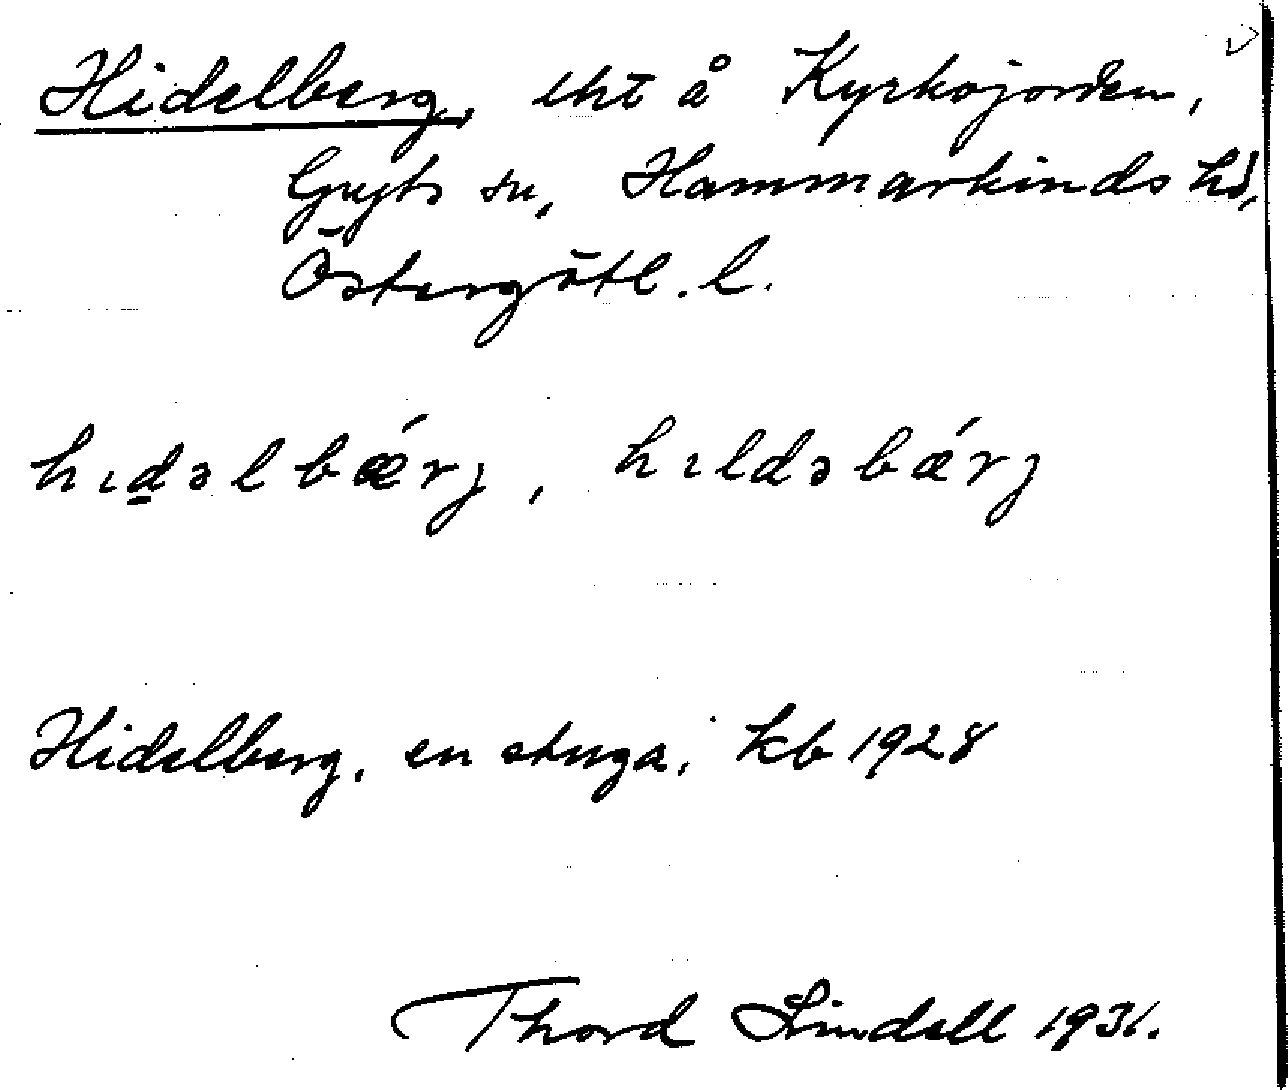 Hidelberg, lht å Kyrkojorden,
Gryts sn, Hammarkinds hd,
Östergötl. l.
hıdəlbǽrj, hıldəbǽrj
Hidelberg, en stuga, kb 1928
Thord Lindell 1931.